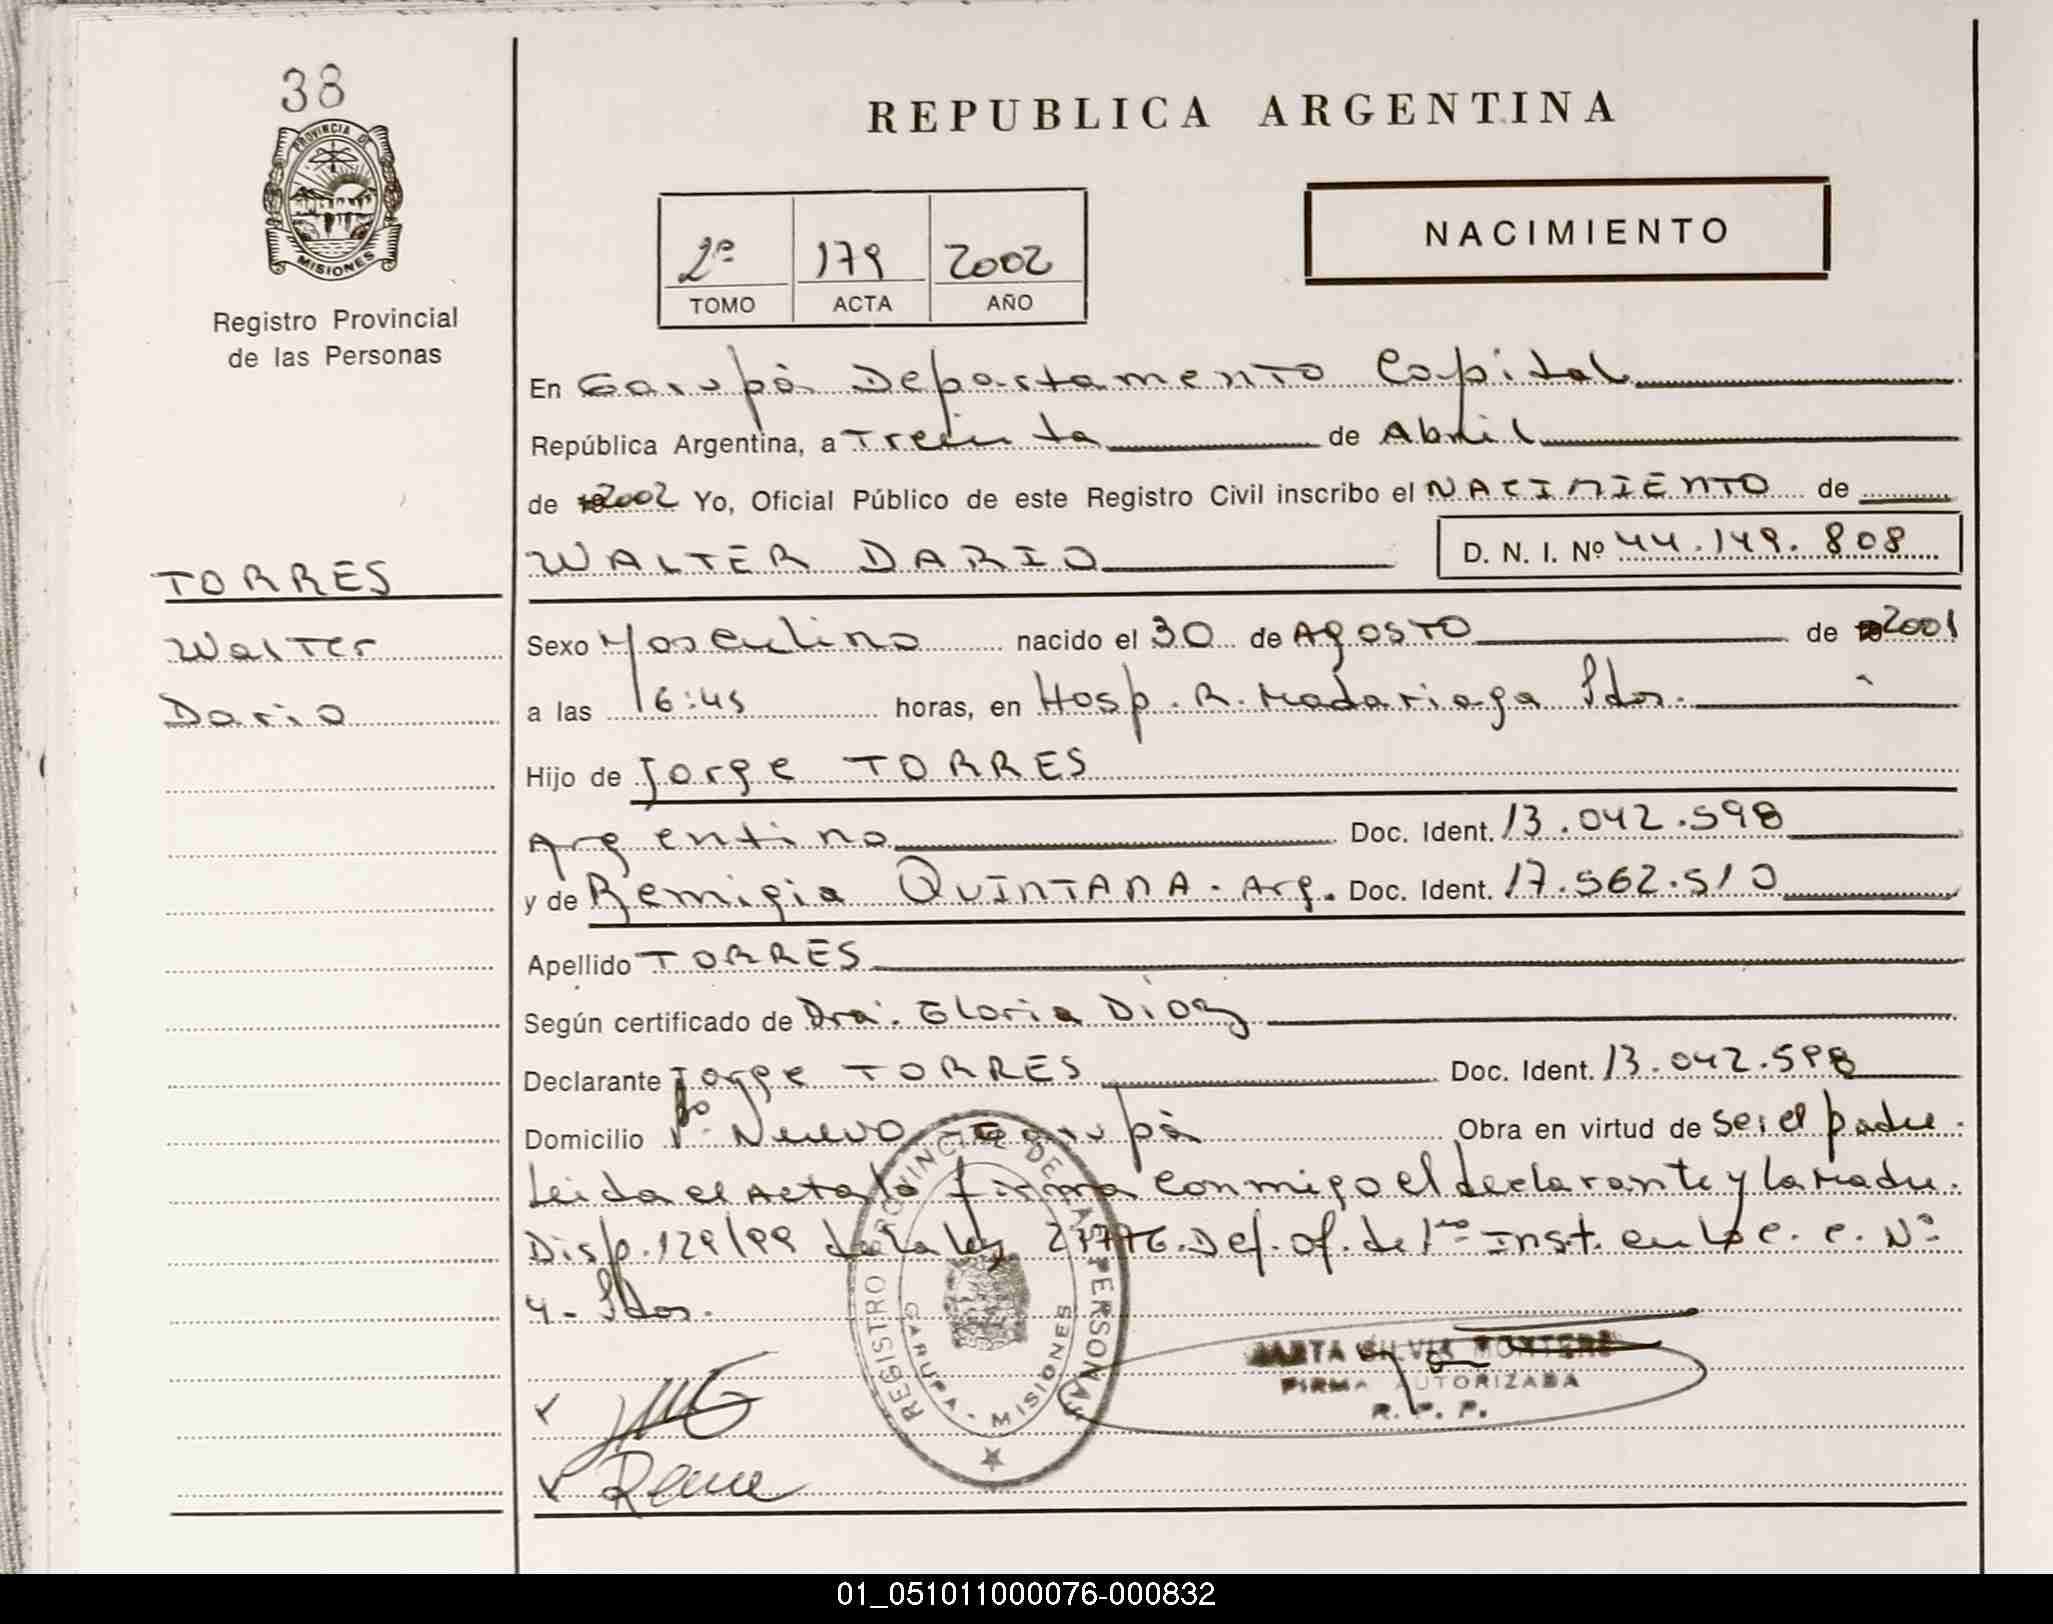 38
PROVINCIA DE
MISIONES
Registro Provincial
de las Personas
REPUBLICA ARGENTINA
NACIMIENTO
2º 179 2002
TOMO ACTA AÑO
En Garupá Departamento Capital
República Argentina, a Treinta de Abril
de 2002 Yo, Oficial Público de este Registro Civil inscribo el NACIMIENTO de
WALTER DARIO D. N. I. Nº 44.149.808
TORRES
Walter
Dario
Sexo Masculino nacido el 30 de Agosto de 2001
a las 16:45 horas, en Hosp. R. Madariaga Pdas.
Hijo de Jorge TORRES
Argentino Doc. Ident. 13.042.598
y de Remigia QUINTANA - Arg. Doc. Ident. 17.562.510
Apellido TORRES
Según certificado de Dra. Gloria Díaz
Declarante Jorge TORRES Doc. Ident. 13.042.598
Domicilio Bº Nuevo - Garupá Obra en virtud de ser el padre.
Leida el Acta la firma conmigo el declarante y la Madre.
Disp. 129/99 de la ley 21776. Def. of. de 1ra Inst. en lo C. C. Nº
4 - Pdas.
REGISTRO PROVINCIAL DE LAS PERSONAS
GARUPA - MISIONES
MARTA SILVIA MONTERO
FIRMA AUTORIZADA
R. P. P.
01_051011000076-000832